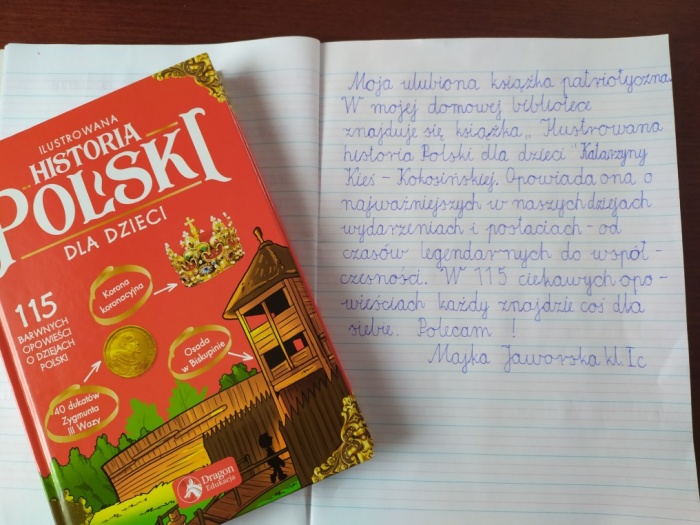 ILUSTROWANA
HISTORIA
POLSKI
DLA DZIECI
115
BARWNYCH
OPOWIEŚCI
O DZIEJACH
POLSKI
Korona
koronacyjna
Osada
w Biskupinie
40 dukatów
Zygmunta
III Wazy
Dragon
Edukacja
Moja ulubiona książka patriotyczna.
W mojej domowej bibliotece
znajduje się książka „Ilustrowana
historia Polski dla dzieci" Katarzyny
Kieś - Kokosińskiej. Opowiada ona o
najważniejszych w naszych dziejach
wydarzeniach i postaciach - od
czasów legendarnych do współ -
czesności. W 115 ciekawych opo -
wieściach każdy znajdzie coś dla
siebie. Polecam !
Majka Jaworska kl. Ic